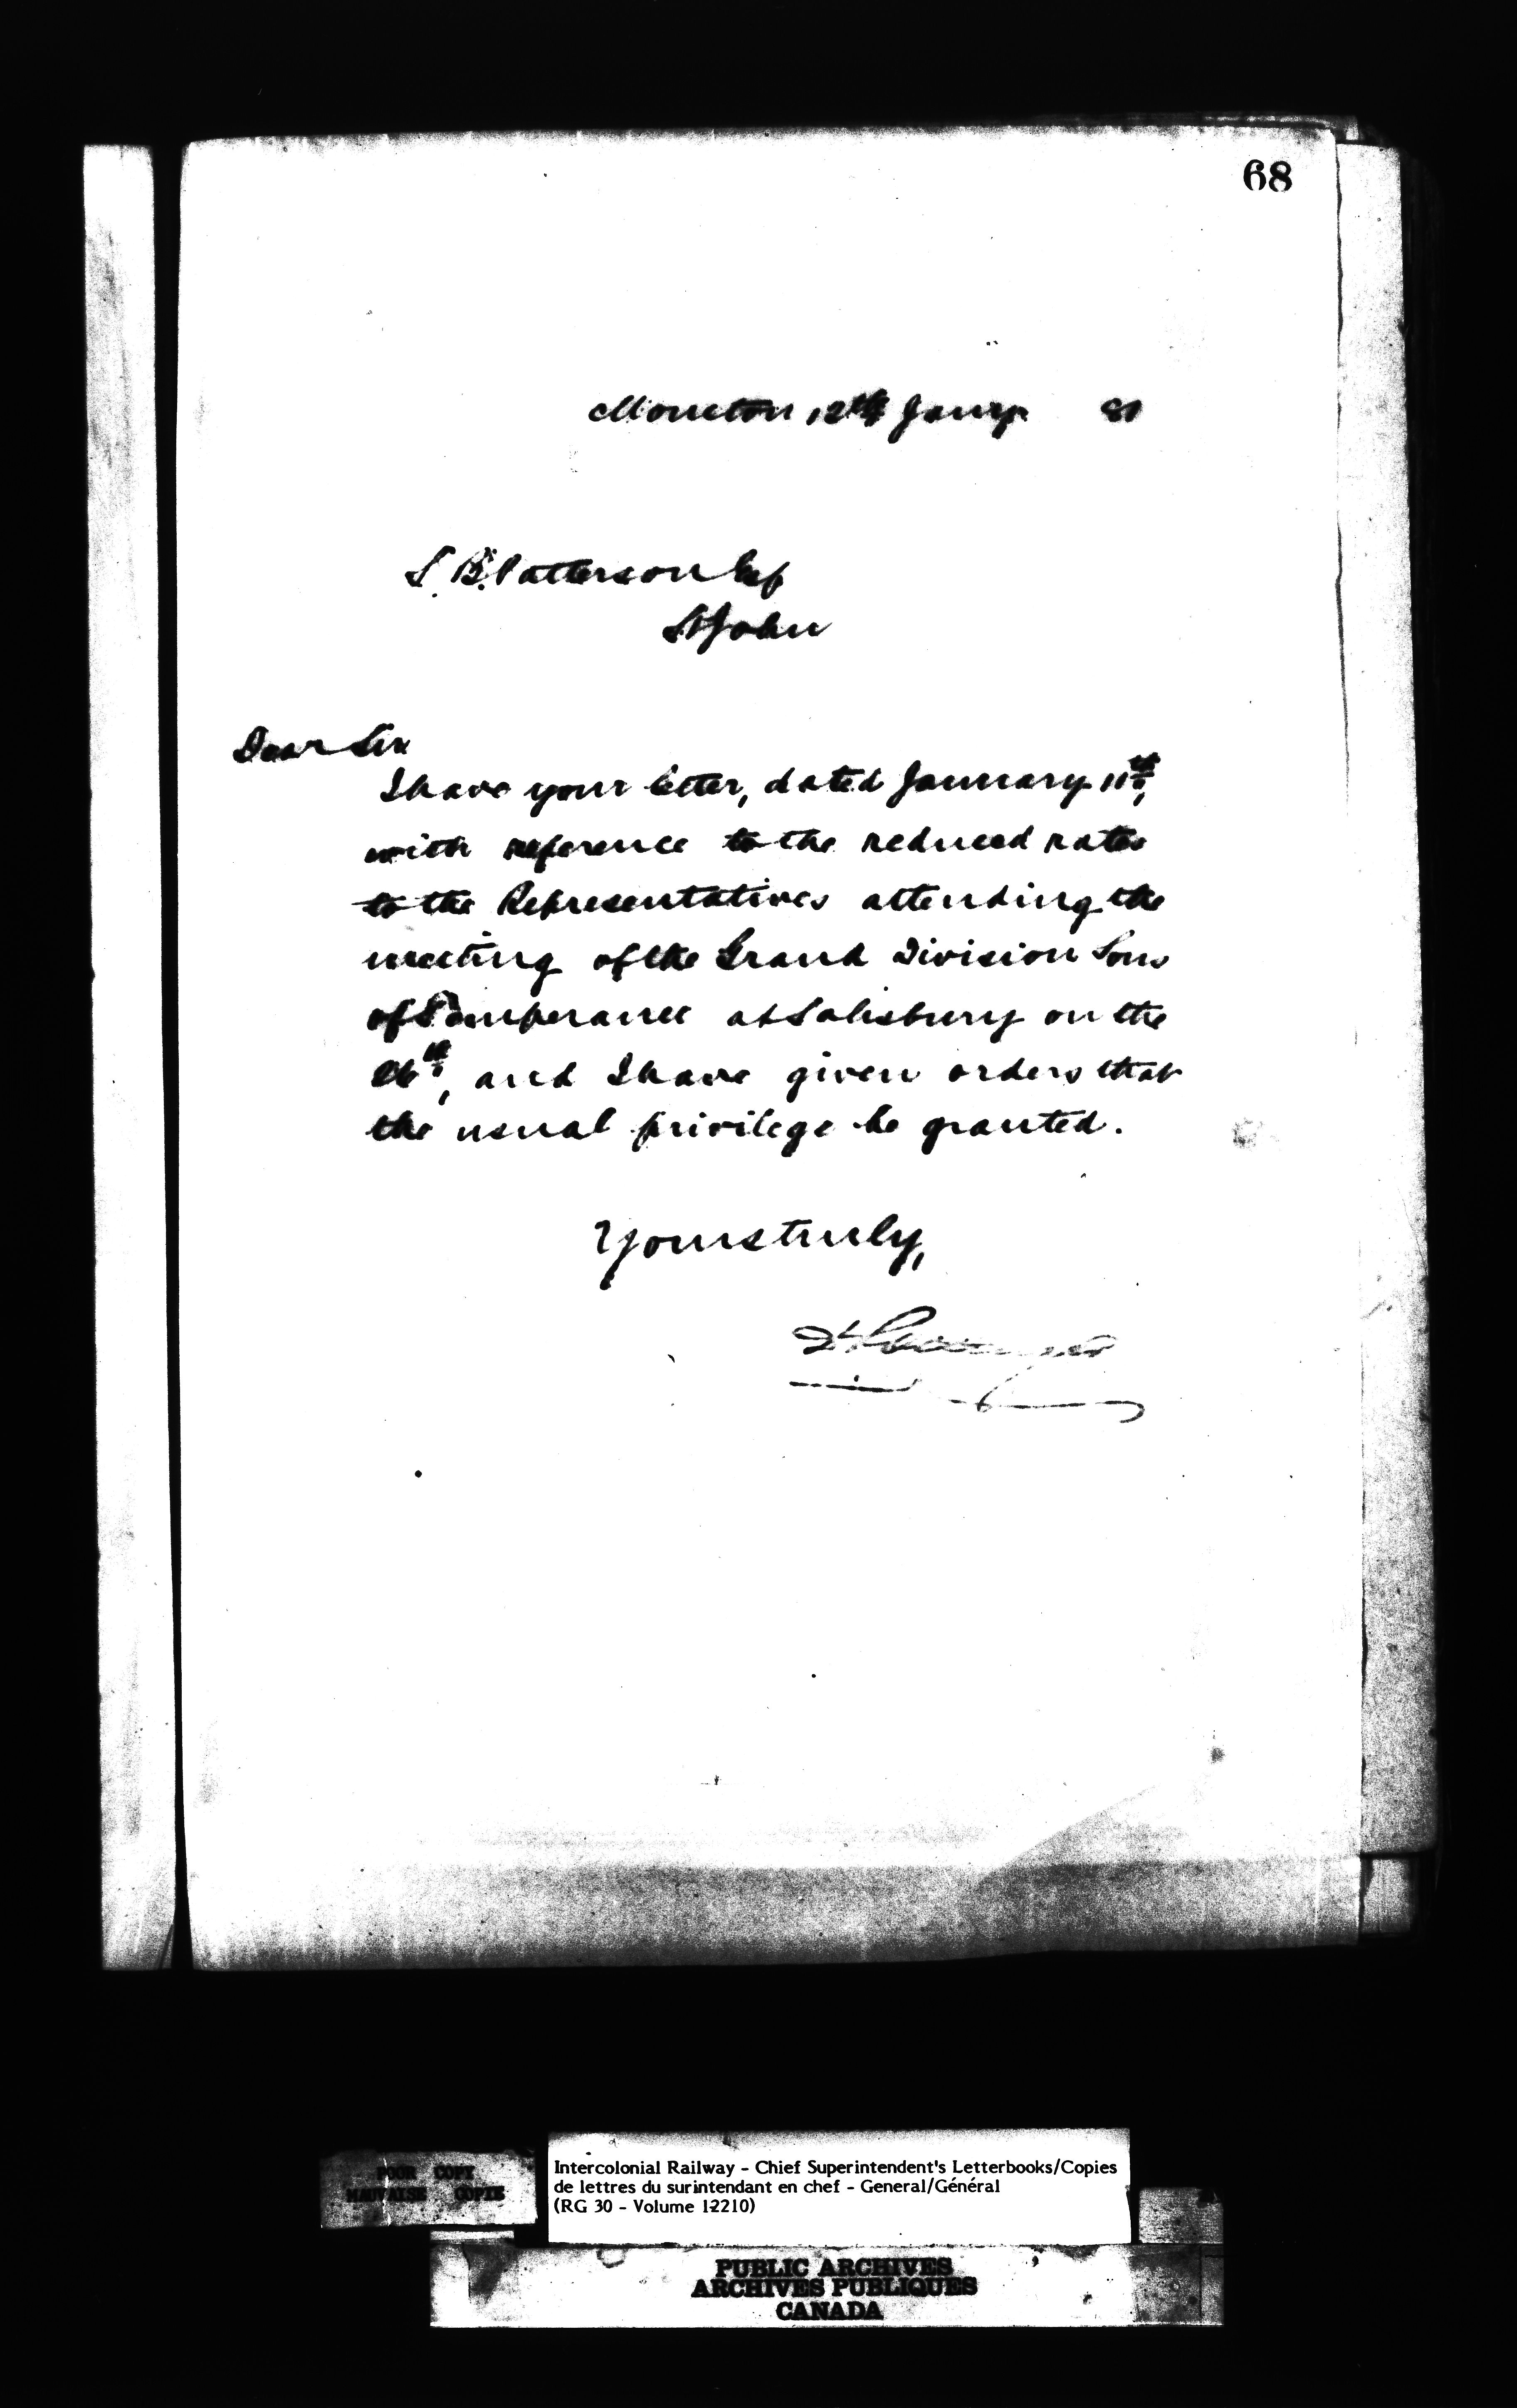 68
Moncton 12th Jany. 81
S. B. Patterson Esq
St John
Dear Sir
I have your letter, dated January 11th,
with reference to the reduced rates
to the Representatives attending the
meeting of the Grand Division Sons
of Temperance at Salisbury on the
26th, and I have given orders that
the usual privilege be granted.
Yours truly,
POOR COPY
MAUVAISE COPIE
Intercolonial Railway - Chief Superintendent's Letterbooks/Copies
de lettres du surintendant en chef - General/Général
(RG 30 - Volume 12210)
PUBLIC ARCHIVES
ARCHIVES PUBLIQUES
CANADA